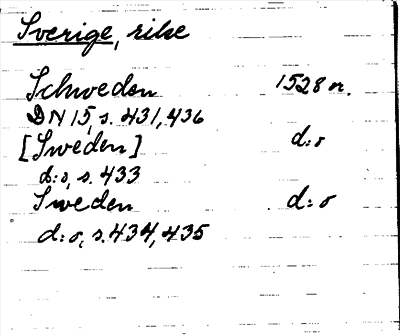 Sverige, rike
Schweden 1528 n.
DN 15, s. 431, 436
[Sweden] d:o
d:o, s. 433
Sweden d:o
d:o, s. 434, 435